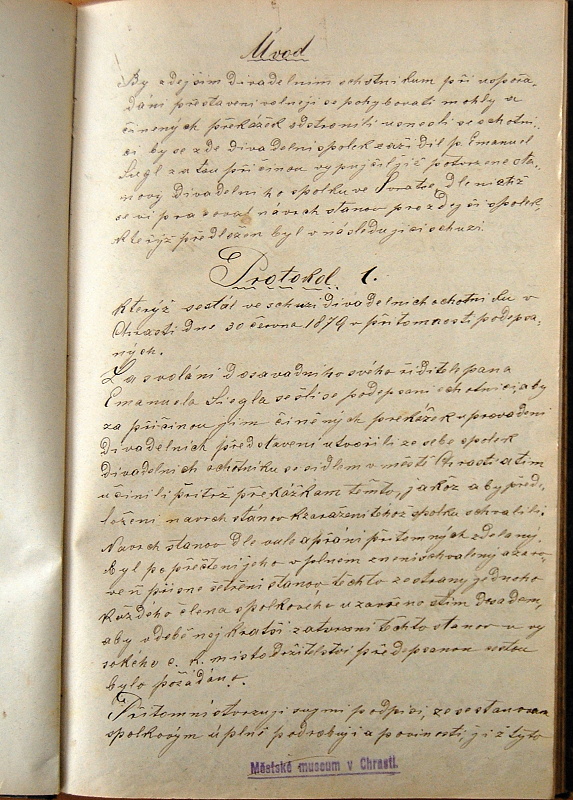 Úvod
By zdejším divadelním ochotníkum při uspořá-
dání představení volněji se pohybovati mohly a
činěných překážek odstranili usnesli se ochotní-
ci by se zde divadelní spolek zařídil p. Emanuel
Siegl za tou příčinou vypujčil již potvrzené sta-
novy divadelního spolku ve Svratce, dle nichž
se vypracoval návrch stanov pro zdejší spolek,
kterýž předložen byl v následující schuzi.
Protokol 1.
kterýž sestál ve schuzi divadelních ochotníku v
Chrasti dne 30 června 1879 v přítomnosti podepsa-
ných.
Za svolání dosavadního svého řiditele pana
Emanuela Siegla sešli se podepsaní ochotníci, aby
za příčinou jim činěných překážek u provádění
divadelních představení utvořili ze sebe spolek
divadelních ochotníku se sídlem v městě Chrasti a tím
učinili přítrž překážkam těmto, jakož aby před-
ložení navrch stanov k zaražení tohož spolku schvalili,
Navrch stanov dle vule a přání přítomných zdělaný
byl po přečtení jeho v plném znění schvalený a zaro-
veň přísné šetření stanov, těchto ze strany jednoho
každého člena spolkového uzavřeno s tím dosadem,
aby v době nejkratší zatvrzení těchto stanov u vy
sokého c. k. místodržitelství předepsanou cestou
bylo požádáno.
Přítomní stvrzují svými podpisy, že se stanovam
spolkovým úplně podrobují a povinosti, již tyto
Městské museum v Chrasti.